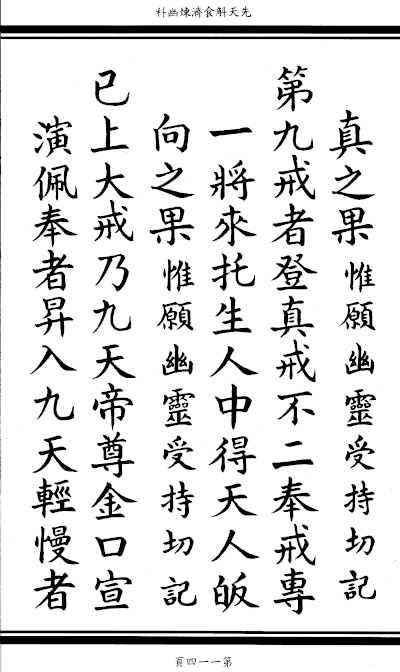 先天斛食濟煉幽科
真之果惟願幽靈受持切記
第九戒者登真戒不二奉戒專
一將來托生人中得天人皈
向之果惟願幽靈受持切記
已上大戒乃九天帝尊金口宣
演佩奉者昇入九天輕慢者
第一一四頁